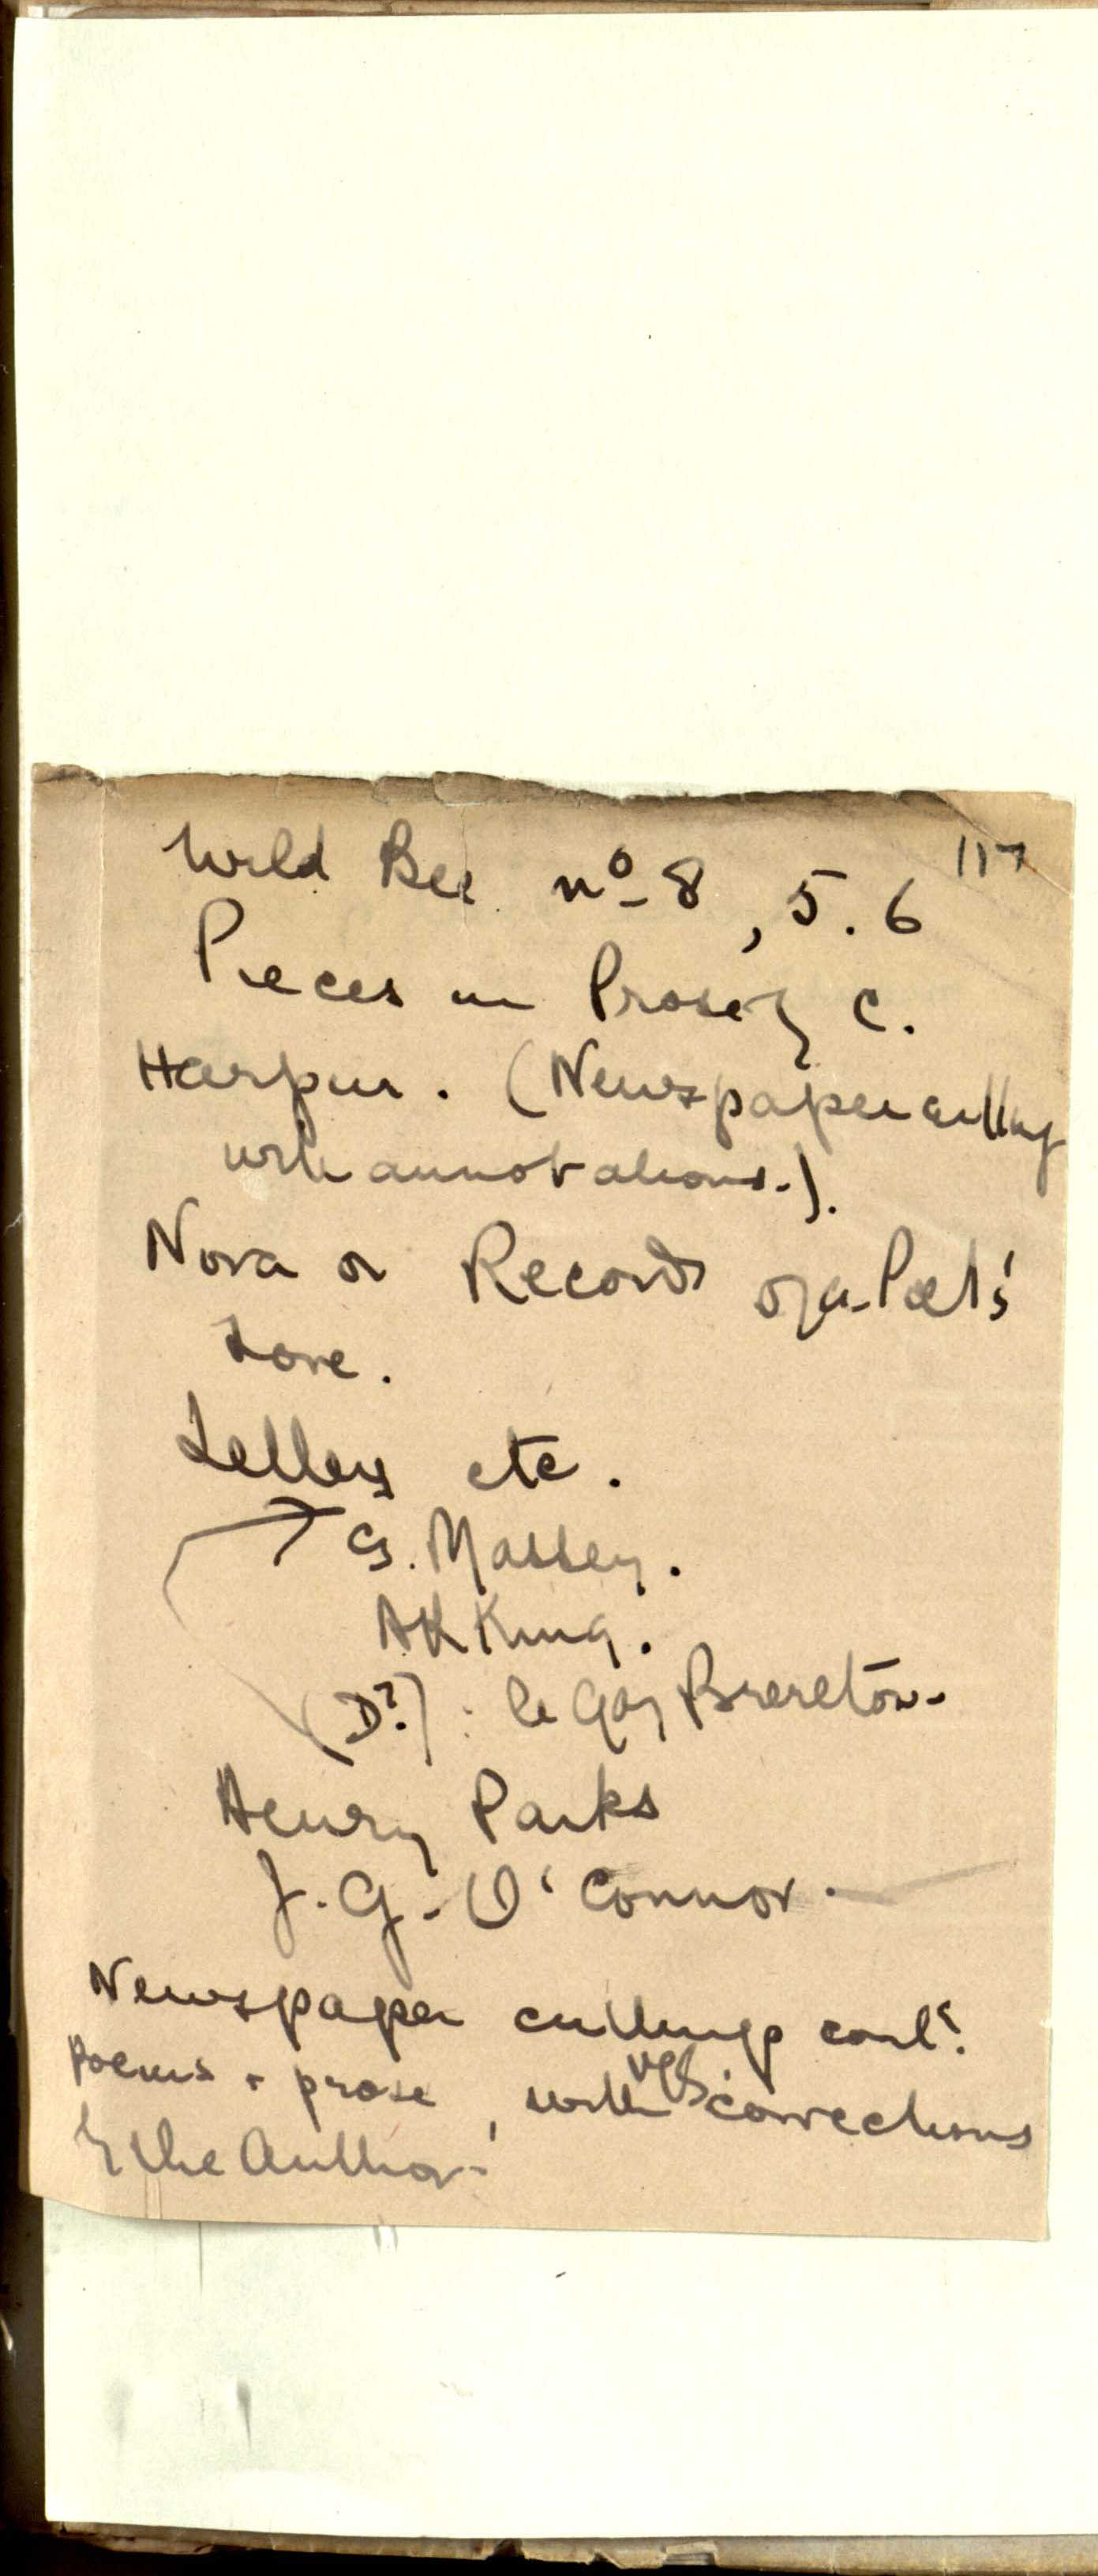 117
Wild Bee no 8, 5. 6
Pieces in Prose by C.
Harpur. (Newspaper cutting
with annotations.).
Nora or Records of a Poet's
Love.
Letters etc.
G. Massey.
AK King.
(D?) : le Gay Brereton.
Henry Parks
J. G. O'Connor.
Newspaper cuttings cont?
Poems + prose, with corrections
by the Author.